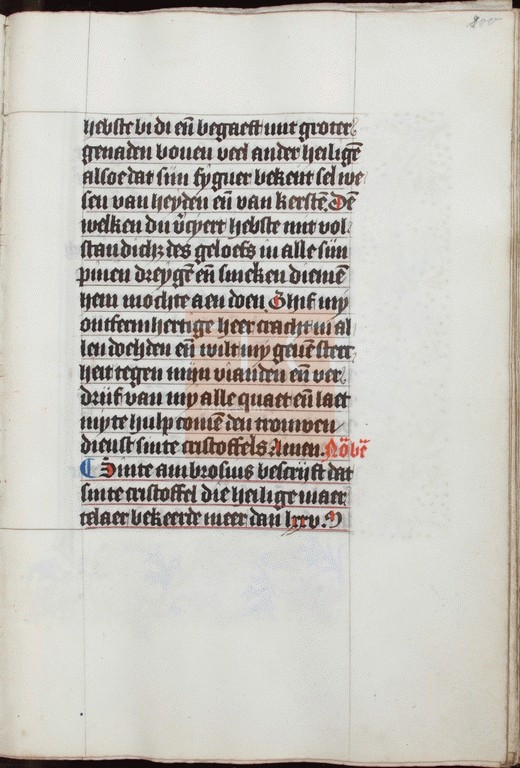 200
hebste bi di en̄ begaeft mit groter
genaden bouen veel ander heiligē
alsoe dat sijn fyguer bekent sel we
sen van heyden en̄ van kerstē. Dē
welken du v̄cyert hebste mit vol
standich des geloefs in alle sijn
pinen dreygē en̄ smeken diemē
hem mochte aen doen. Ghif my
ontfermhertige heer cracht in al
len dochden en̄ wilt my geuē sterc
heit tegen mijn vianden en̄ ver
drijf van my alle quaet en̄ laet
my te hulp comē den trouwen
dienst sinte cristoffels. Amen. Nōbē
Sinte ambrosius bescrijft dat
sinte cristoffel die heilige maer
telaer bekeerde meer dan lxxv. M